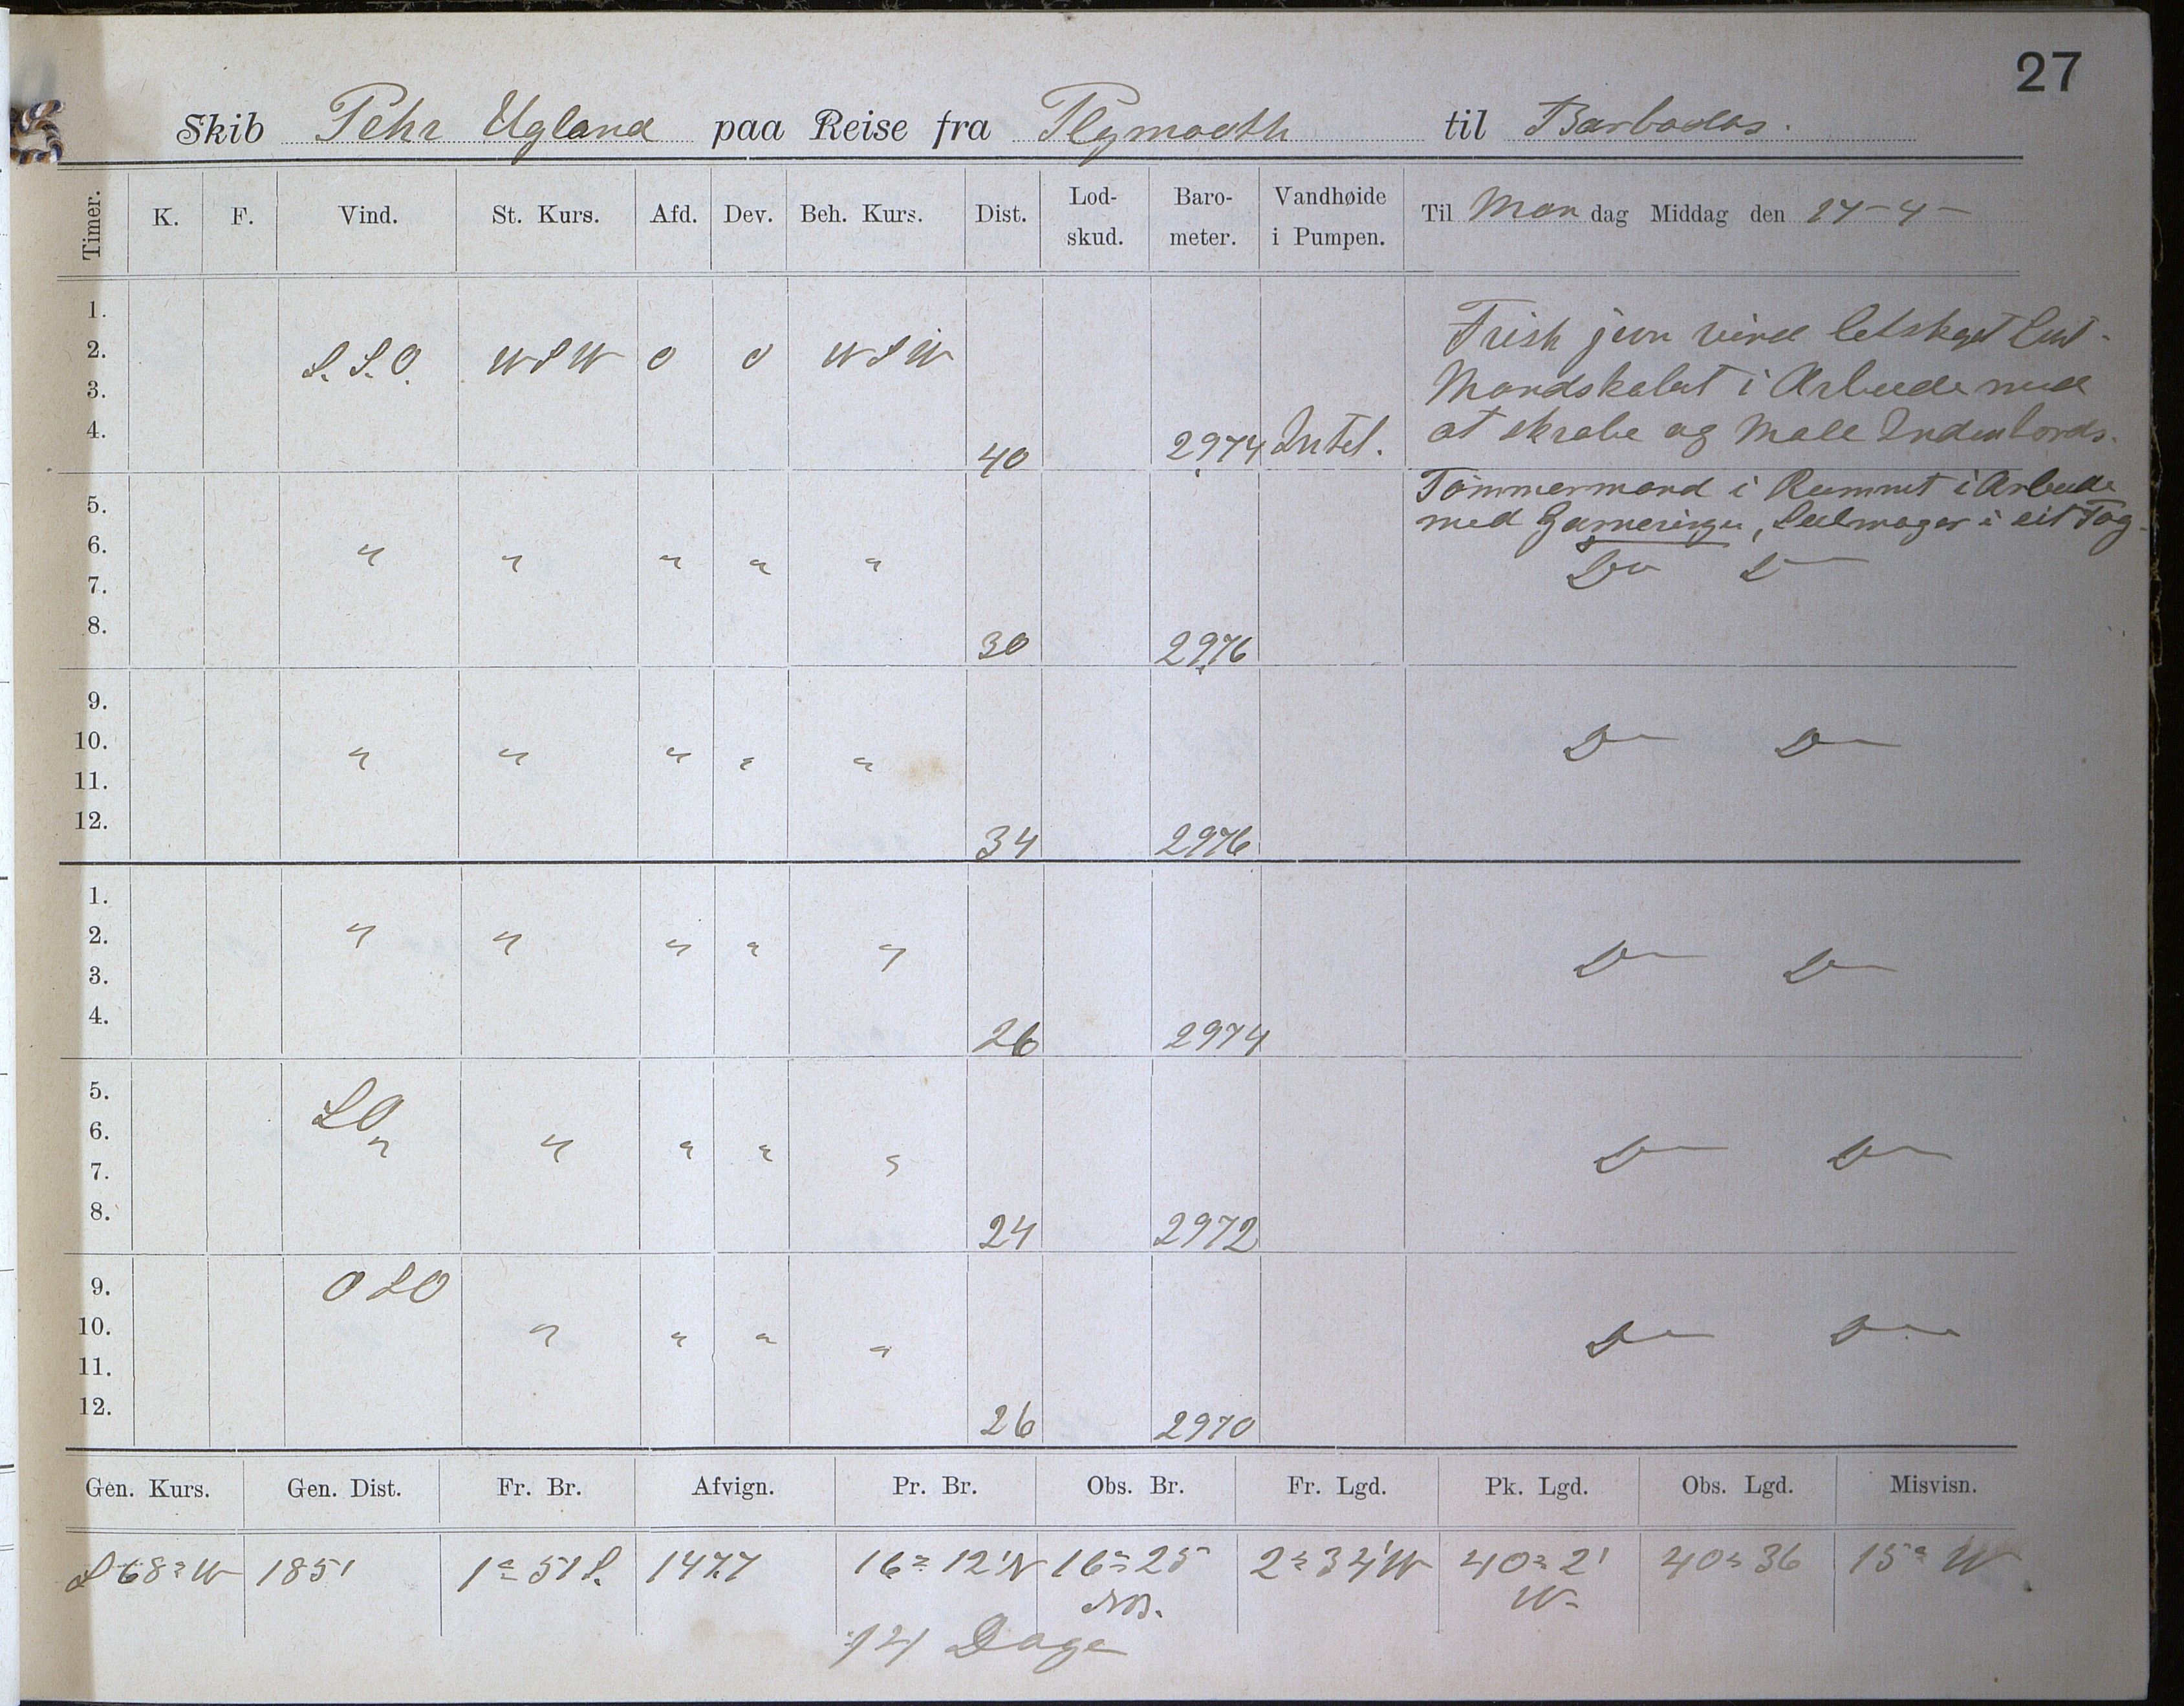 27
Skib Pehr Ugland paa Reise fra Plymouth til Barbados.
Timer. K. F. Vind. St. Kurs. Afd. Dev. Beh. Kurs. Dist. Lod-skud. Baro-meter. Vandhøide i Pumpen. Til Man dag Middag den 24-4-
1.
2. S.S.O. WSW 0 0 WSW
3.
4. 40 2974 Intet.
Frisk jevn vind letskyet Luft.
Mandskabet i Arbeide med
at skrabe og Male Indenbords.
Tømmermand i Rummet i Arbeide
med Garneringen, Seilmager i eit Tog.
5.
6. " " " " " Do D
7.
8. 30 2976
9.
10. " " " " " D D
11.
12. 34 2976
1.
2. " " " " " D D
3.
4. 26 2974
5. SO
6. " " " " " D D
7.
8. 24 2972
9. OSO
10. " " " " D D
11.
12. 26 2970
Gen. Kurs. Gen. Dist. Fr. Br. Afvign. Pr. Br. Obs. Br. Fr. Lgd. Pk. Lgd. Obs. Lgd. Misvisn.
S 68° W 185' 1° 51 S. 147.7 16° 12' N 16° 25 2° 34' W 40° 2' W 40° 36 15° W
Dage